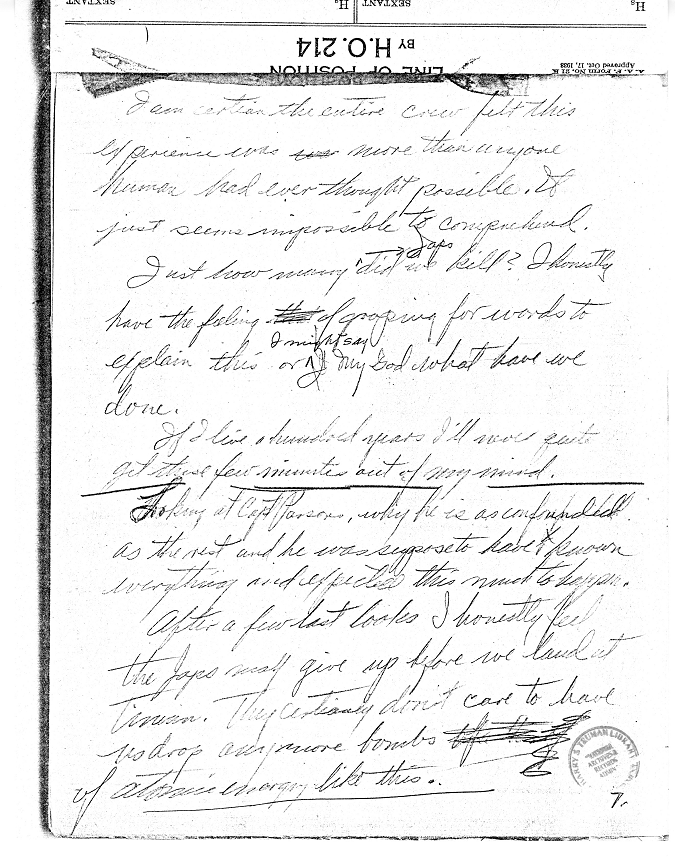 SEXTANT Hs SEXTANT Hs
BY H.O. 214
LINE OF POSITION
A. A. F. Form No. 21
Approved Oct. 17, 1938
I am certian the entire crew felt this
experience was more than anyone
human had ever thought possible. It
just seems impossible to comprehend.
Just how many Japs did we kill? I honestly
have the feeling of groping for words to
explain this or I might say My God what have we
done.
If I live a hundred years I'll never quite
get these few minutes out of my mind.
Looking at Capt Parsons, why he is as confounded
as the rest and he was suppose to have known
everything and expected this much to happen.
After a few last looks I honestly feel
the Japs may give up before we land at
Tinian. They certianly don't care to have
us drop any more bombs
of atomic energy like this.
HARRY S. TRUMAN LIBRARY
7.